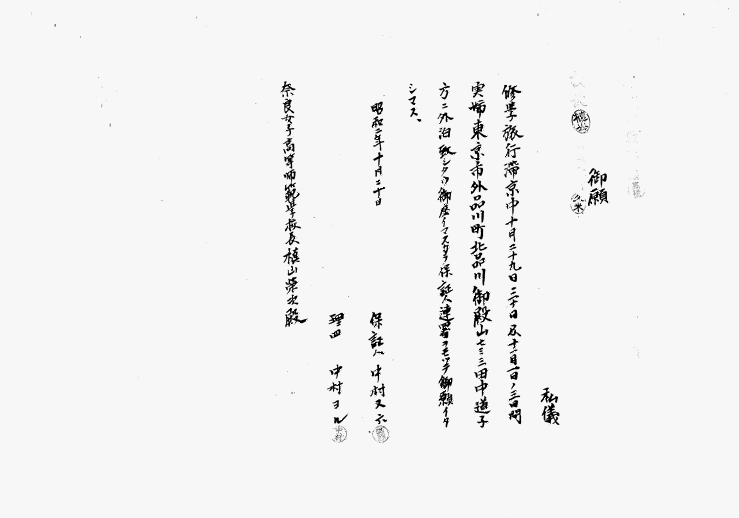 御願
私儀
修学旅行滞京中十月二十九日三十日及十一月一日ノ三日間
実姉東京市外品川町北品川御殿山七三三田中道子
方ニ外泊致シタク御座イマスカラ保証人連署ヲモッテ御願イタ
シマス、
昭和二年十月二十日
保証人 中村
理四 中村ヨル
奈良女子高等師範学校長槙山栄次殿